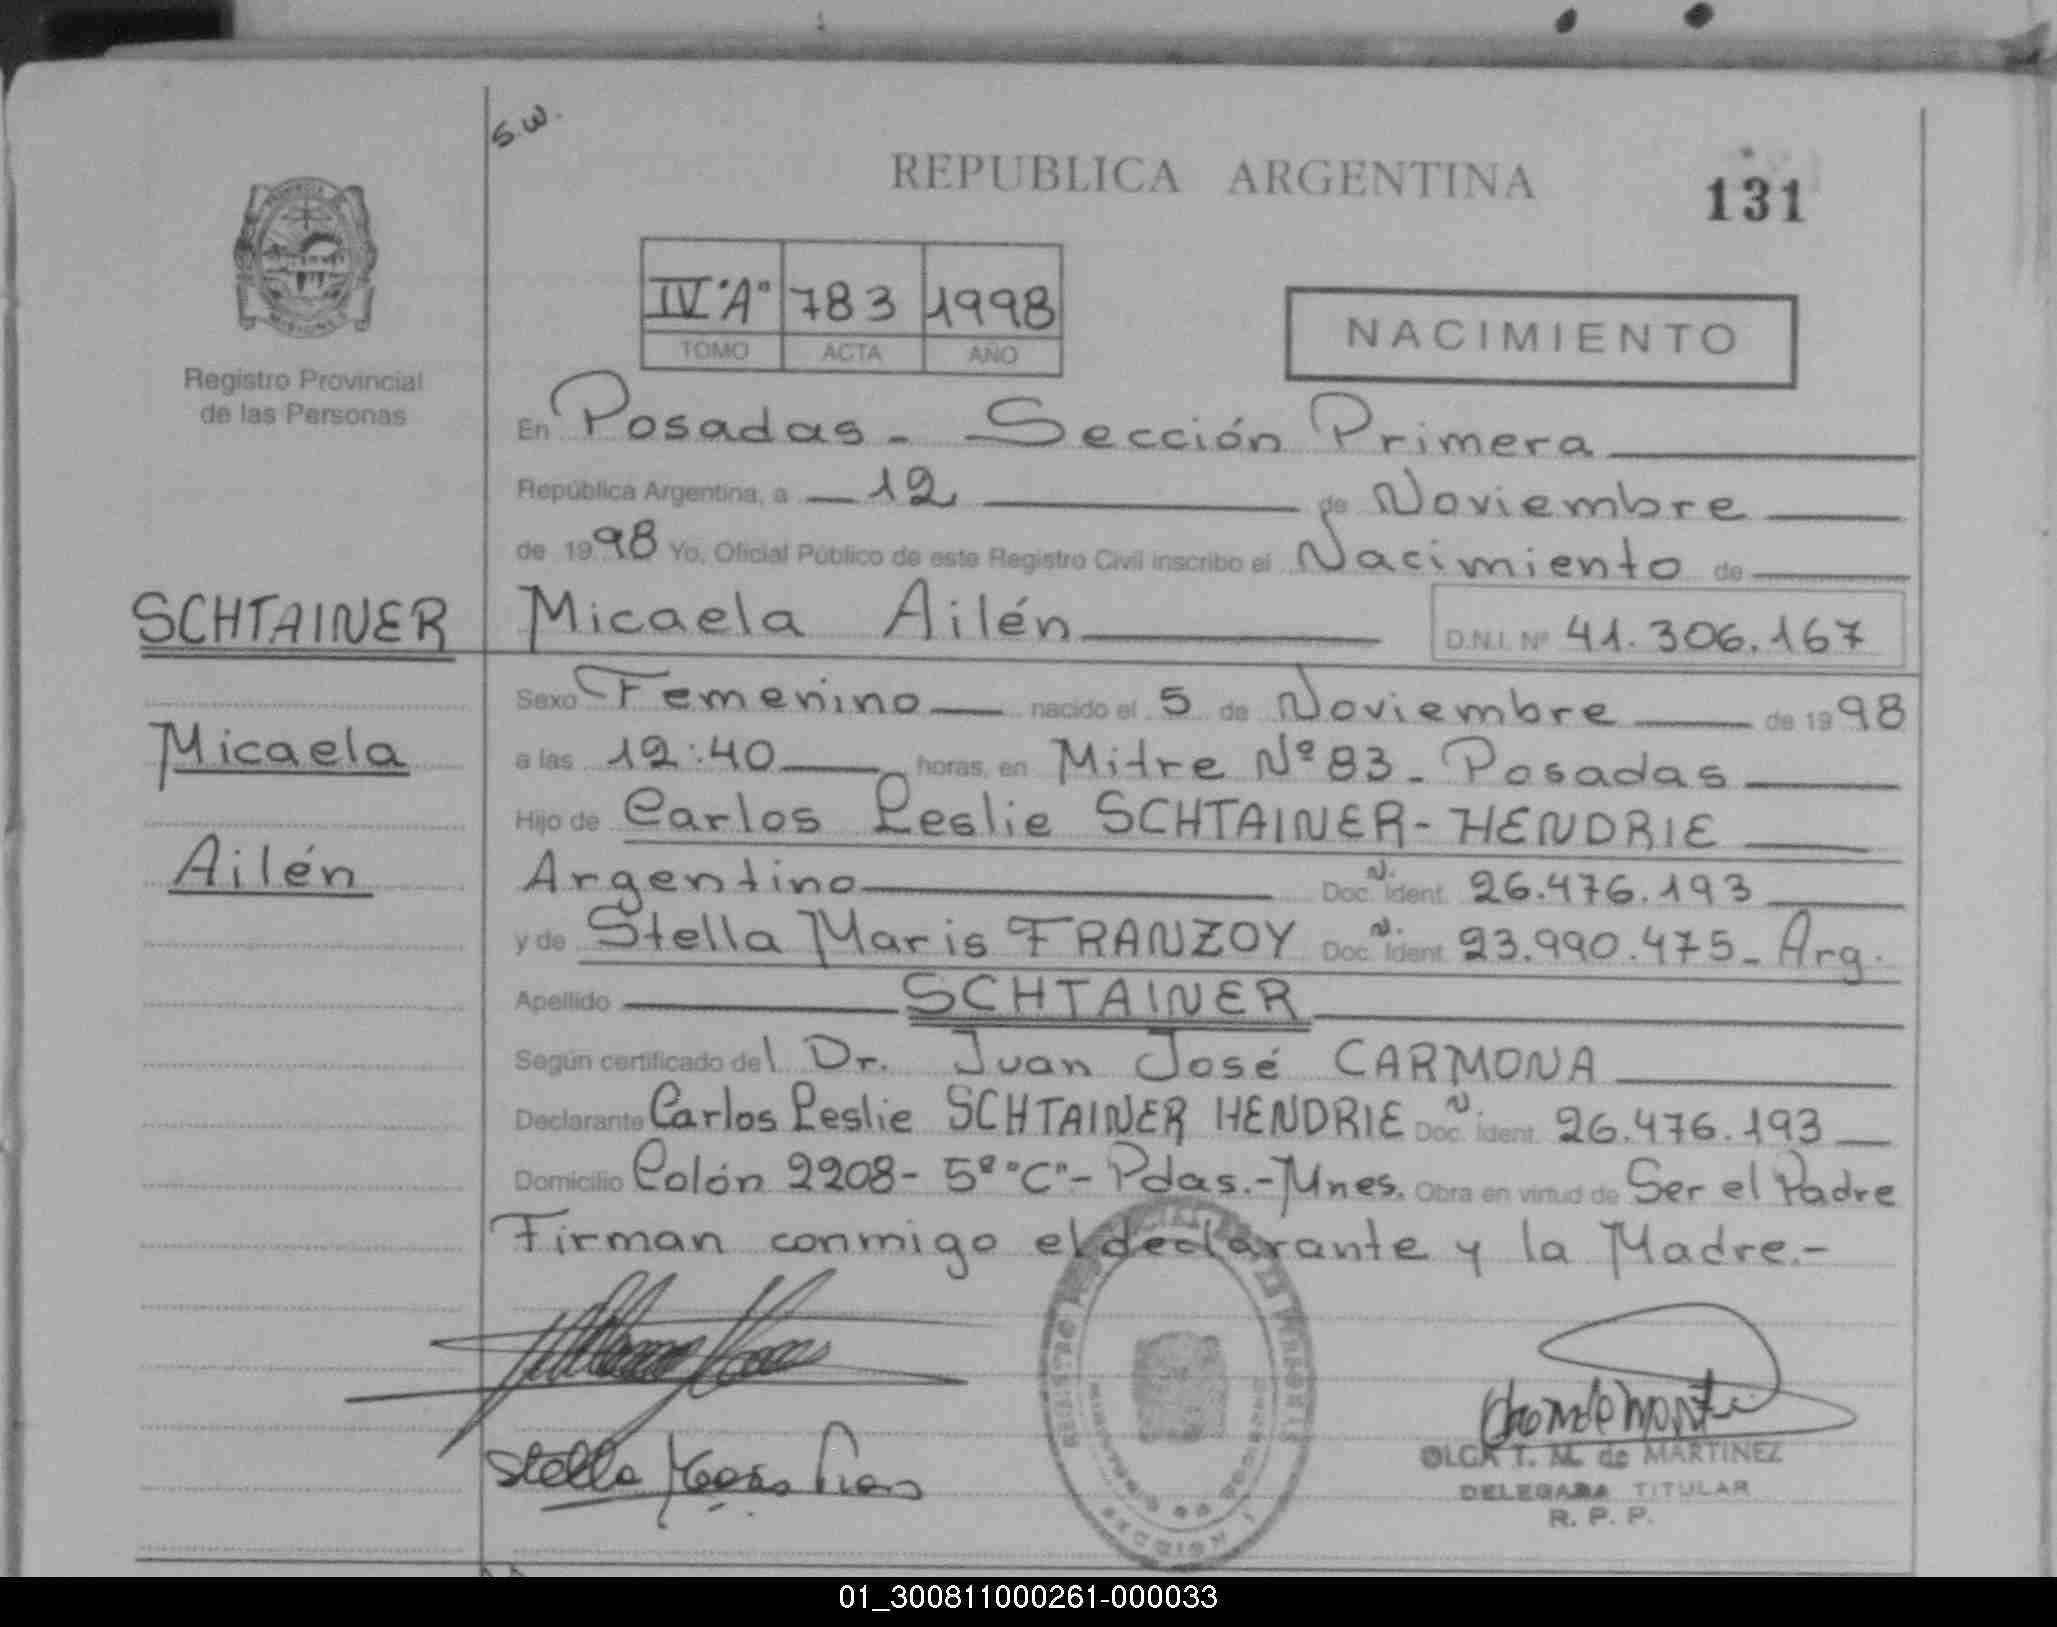 S.W.
REPUBLICA ARGENTINA
131
IV "A" 783 1998
TOMO ACTA AÑO
NACIMIENTO
PROVINCIA DE
MISIONES
Registro Provincial
de las Personas
En Posadas - Sección Primera
República Argentina, a 12 de Noviembre
de 1998 Yo, Oficial Público de este Registro Civil inscribo el Nacimiento de
SCHTAINER
Micaela Ailén D.N.I. Nº 41.306.167
Sexo Femenino nacido el 5 de Noviembre de 1998
Micaela
a las 12:40 horas, en Mitre Nº 83 - Posadas
Hijo de Carlos Leslie SCHTAINER-HENDRIE
Ailén
Argentino Doc. N. Ident. 26.476.193
y de Stella Maris FRANZOY Doc. N. Ident. 23.990.475 - Arg.
Apellido SCHTAINER
Según certificado del Dr. Juan José CARMONA
Declarante Carlos Leslie SCHTAINER HENDRIE Doc. N. Ident. 26.476.193
Domicilio Colón 2208 - 5º "C" - Pdas. - Mnes. Obra en virtud de Ser el Padre
Firman conmigo el declarante y la Madre.-
Stella Maris
REGISTRO PROVINCIAL DE LAS PERSONAS
SECCION 1
OLGA T. M. de MARTINEZ
DELEGADA TITULAR
R. P. P.
01_300811000261-000033